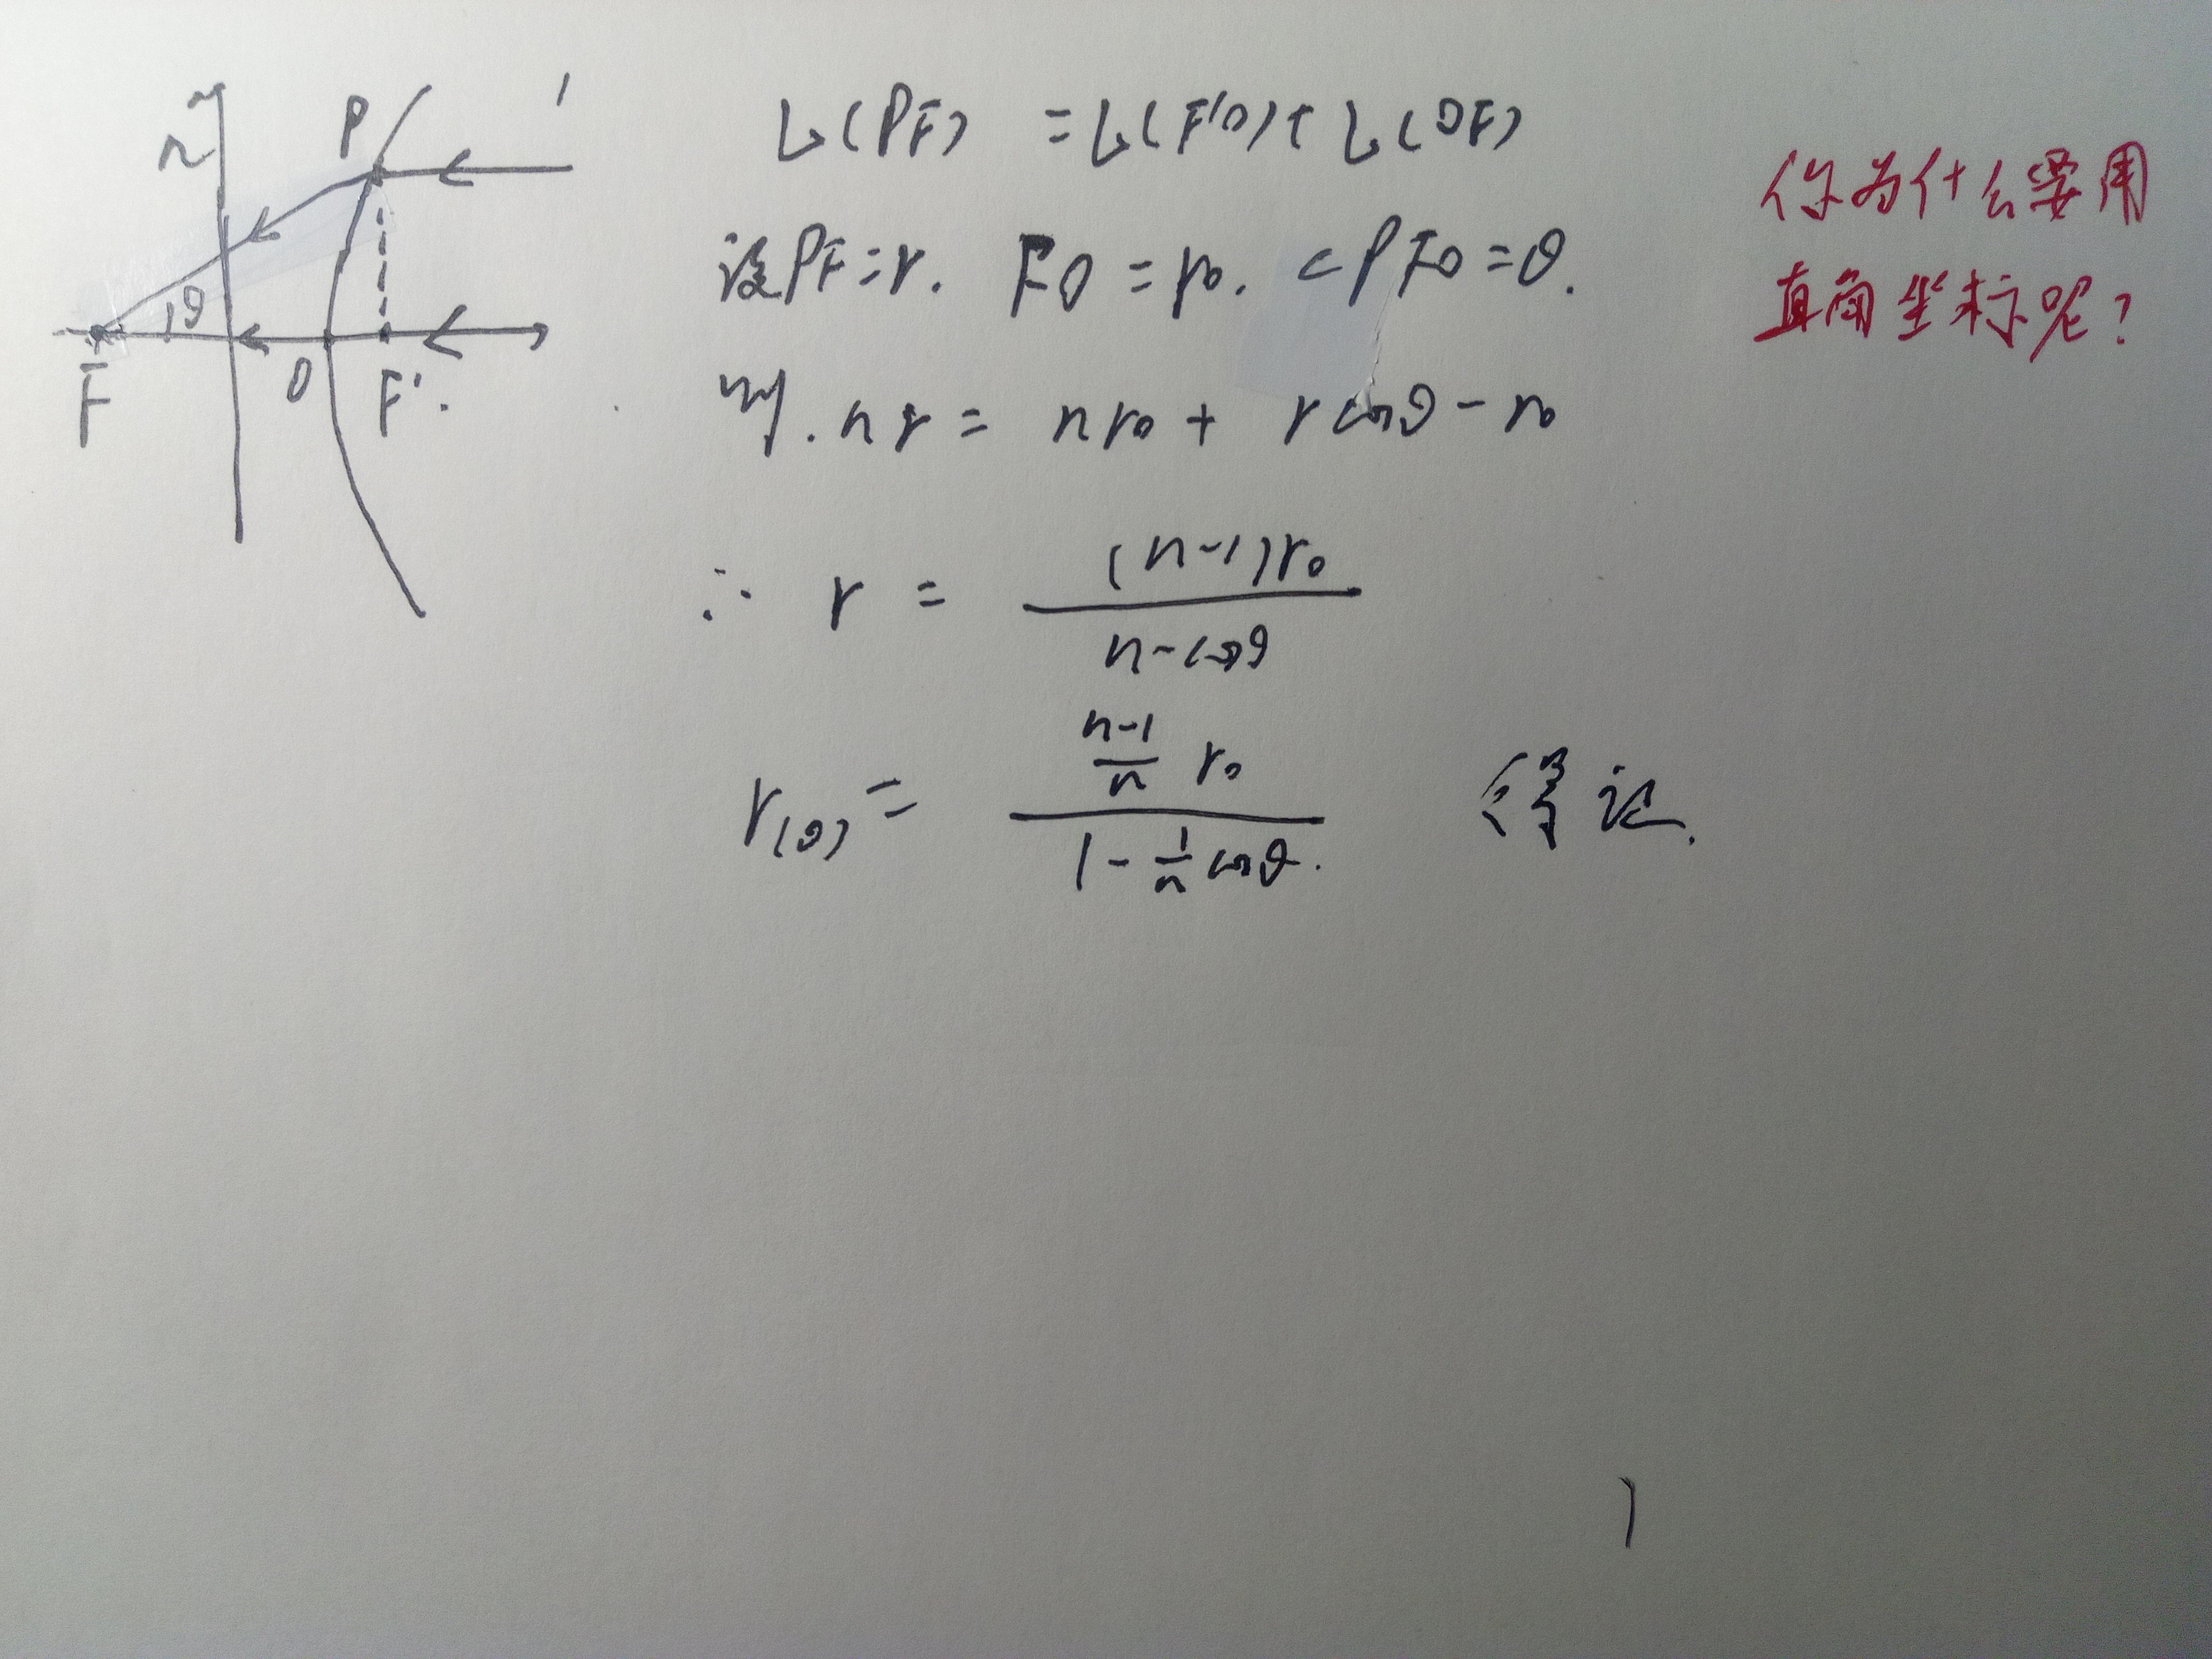 n
P
1
θ
F
O
F'.
L(PF) = L(F'O) + L(OF)
设PF=r. FO=r₀. ∠PFO=θ.
则. nr = nr₀ + rcosθ - r₀
∴ r = (n-1)r₀ / (n-cosθ)
r(θ) = ((n-1)/n r₀) / (1 - 1/n cosθ). 得证.
你为什么要用
直角坐标呢?